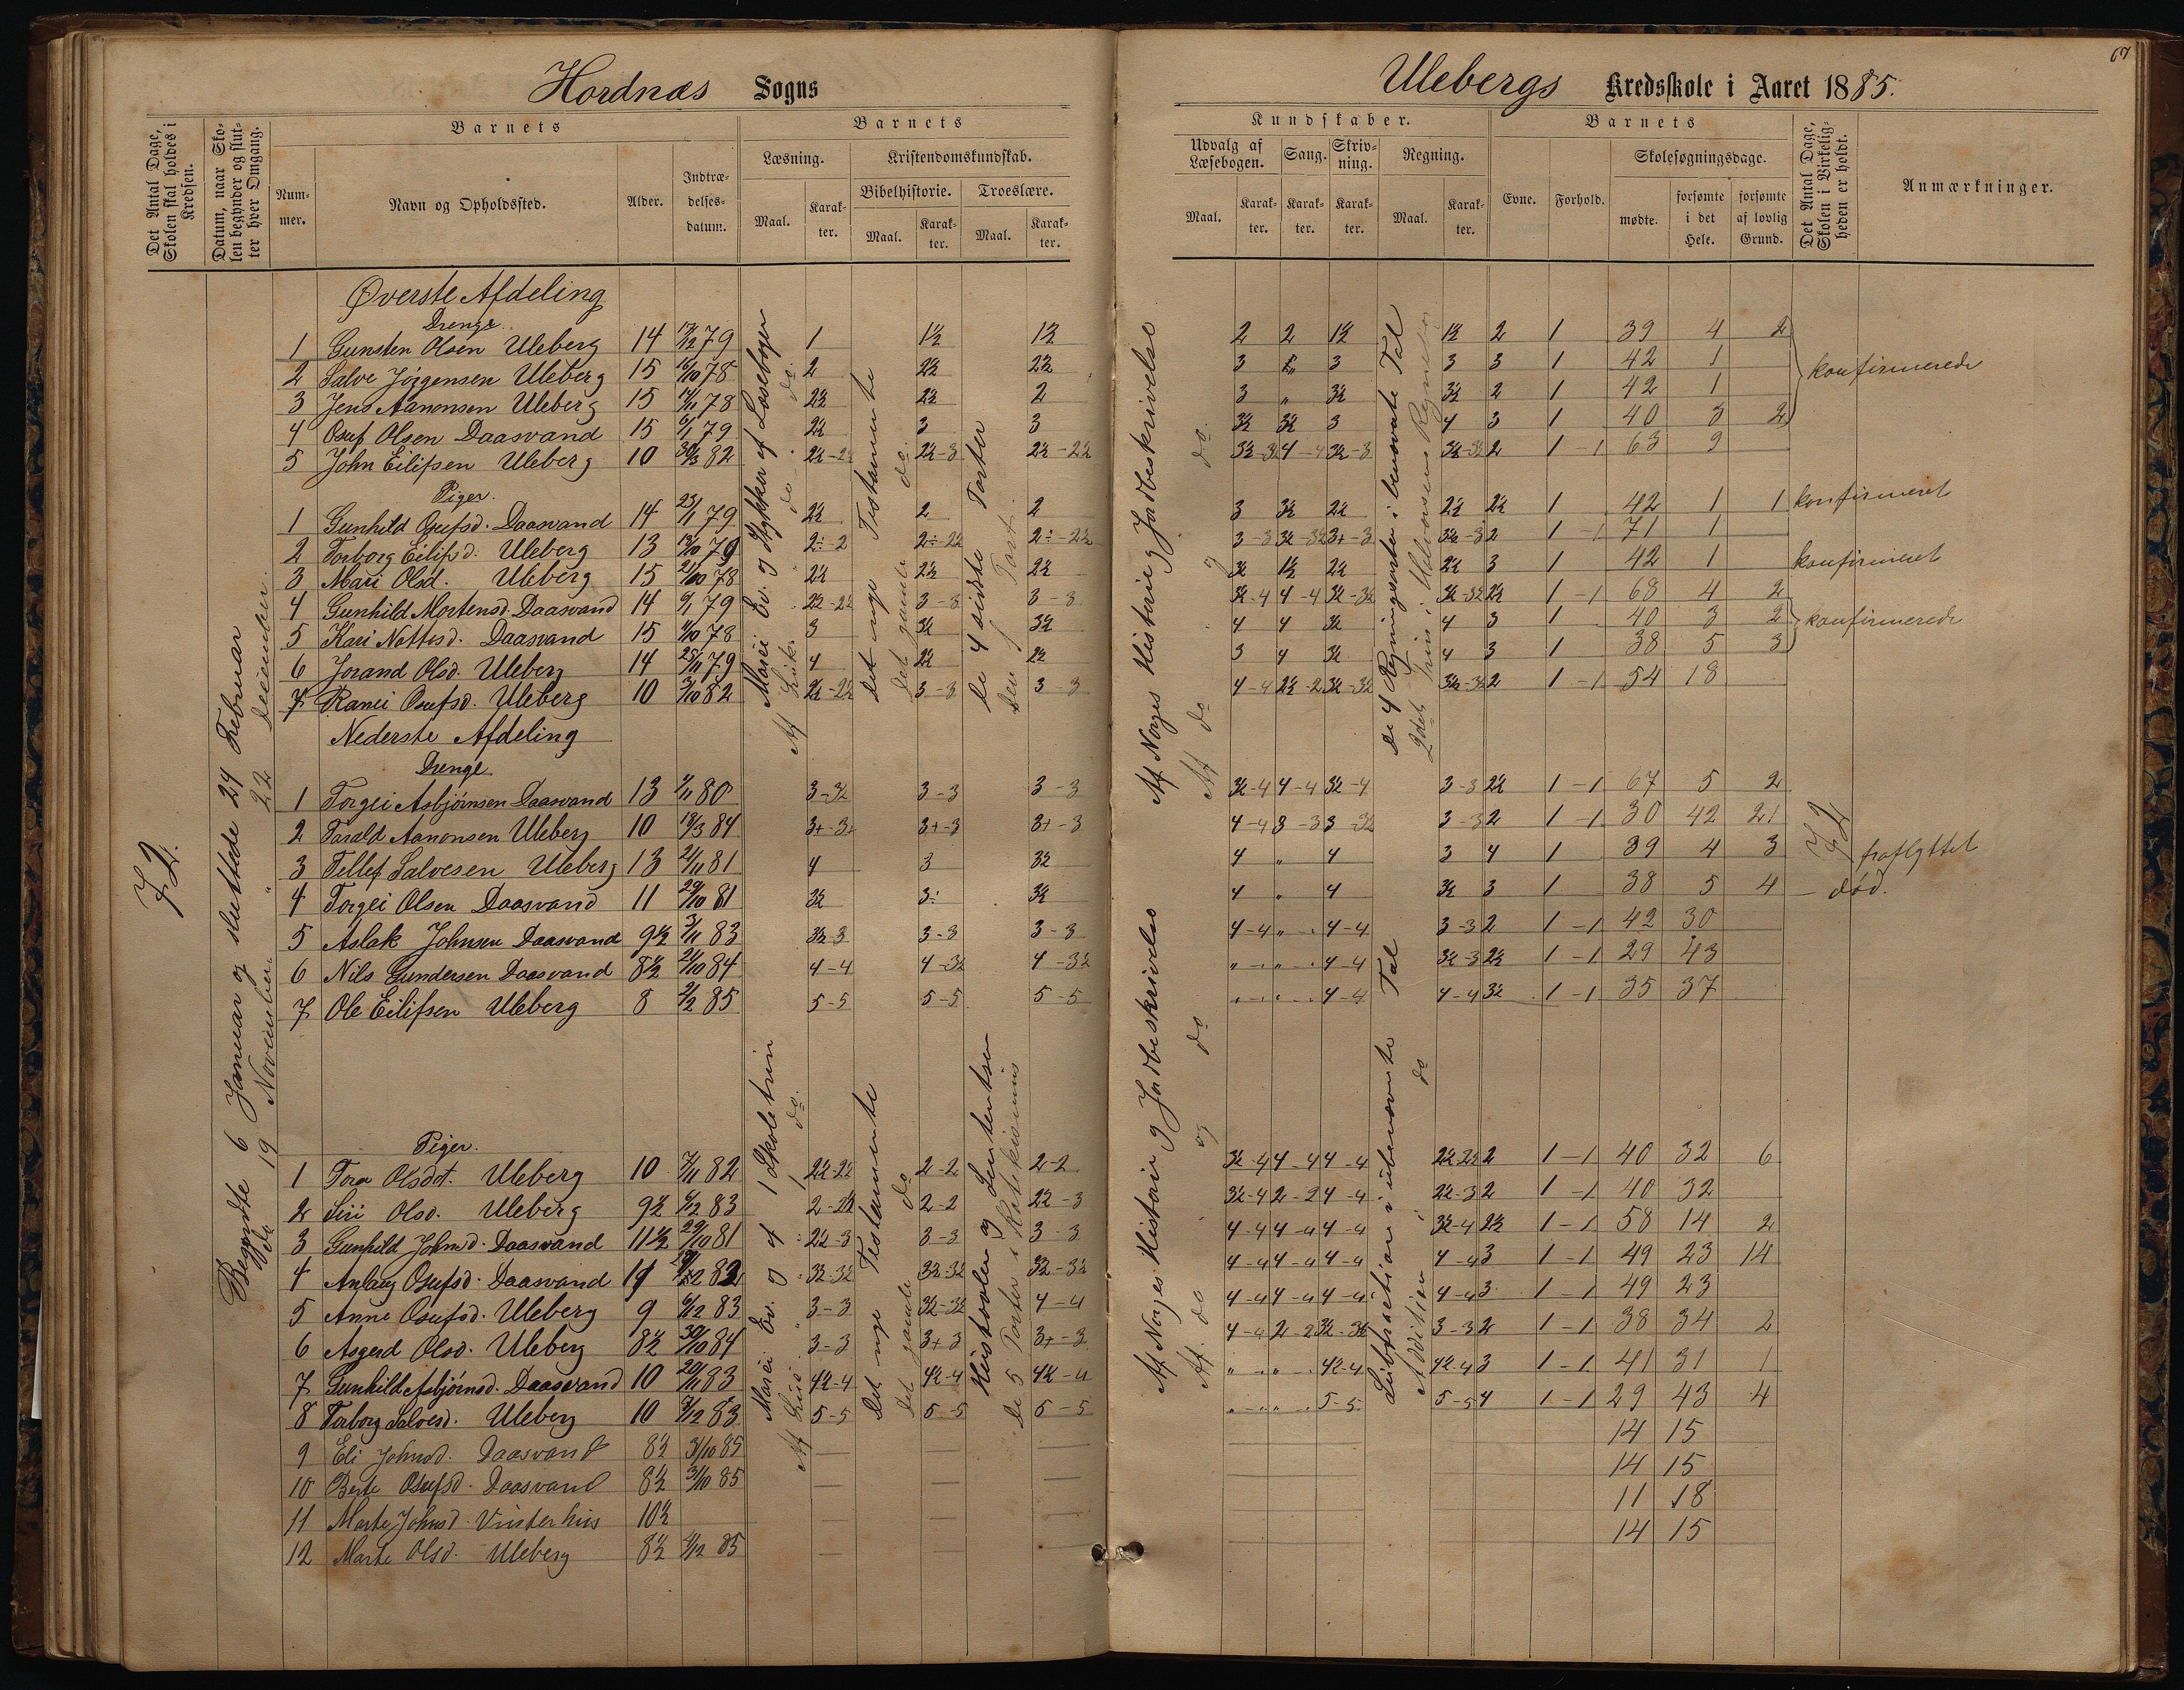 67
Hordnæs Sogns
Ulebergs Kredsskole i Aaret 1885.
Det Antal Dage, Skolen skal holdes i Kredsen.
Datum, naar Skolen begynder og slutter hver Omgang.
Barnets
Nummer.
Navn og Opholdssted.
Alder.
Indtrædelsesdatum.
Barnets
Læsning.
Kristendomskundskab.
Bibelhistorie.
Troeslære.
Maal.
Karakter.
Maal.
Karakter.
Maal.
Karakter.
Kundskaber.
Udvalg af Læsebogen.
Sang.
Skrivning.
Regning.
Maal.
Karakter.
Karakter.
Karakter.
Maal.
Karakter.
Barnets
Evne.
Forhold.
Skolesøgningsdage.
mødte.
forsømte i det Hele.
forsømte af lovlig Grund.
Det Antal Dage, Skolen i Virkeligheden er holdt.
Anmærkninger.
72.
Begyndte 6 Januar og sluttede 24 Februar
do 19 November " 22 December.
Øverste Afdeling
Drenge.
1 Gunsten Olsen Uleberg 14 79 1 1½ 1½ 2 2 1½ 1½ 2 1 39 4 2
2 Salve Jörgensen Uleberg 15 16/10 78 2 2½ 2½ 3 3 3 3 1 42 1
konfirmerede
3 Jens Aanonsen Uleberg 15 78 2½ 2½ 2 3 " 3½ 3½ 2 1 42 1
4 Osuf Olsen Daasvand 15 79 2½ 3 3 3½ 3½ 3 4 3 1 40 3 2
5 John Eilifsen Uleberg 10 30/3 82 2½-2½ 2½-3 2½-2½ 4-4 3½-3 2 1-1 63 9
Piger.
1 Gunhild Osufsd. Daasvand 14 23/1 79 2½ 2 2 3 3½ 2½ 2½ 2½ 1 42 1 1 konfirmeret
2 Torborg Eilifsd. Uleberg 13 79 2÷-2 2÷-2½ 2÷-2½ 3-3 3½-3½ 3+-3 3½-3 2 1-1 71 1
3 Mari Olsd. Uleberg 15 21/10 78 2½ 2½ 2½ 3½ 1½ 2½ 2½ 3 1 42 1 konfirmeret
4 Gunhild Mortensd. Daasvand 14 79 2½-2½ 3-3 3-3 3½-4 4-4 3½-3½ 3½-3½ 2½ 1-1 68 4 2
5 Kari Nottosd. Daasvand 15 78 3 3½ 3½ 4 4 3½ 4 3 1 40 3 2
konfirmerede
6 Jorand Olsd. Uleberg 14 25/11 79 4 2½ 2½ 3 4 3½ 4 3 1 38 5 3
7 Ranei Osufsd. Uleberg 10 3/10 82 2½-2½ 3-3 3-3 4-4 2½-2 3½-3½ 3½-3½ 2 1-1 54 18
Marci Ev. og Stykker af Læsebogen
Luk. do do
Det nye Testamente
Det gamle do.
De 4 sidste Parter
Den Part.
Af Norges Historie og Jordbeskrivelse
Af do og do.
De 4 Regningsarter i benævnte Tal
2det Trin i Halvorsens Regnebog
Nederste Afdeling
Drenge
1 Torgei Asbjörnsen Daasvand 13 80 3-3½ 3-3 3-3 3½-4 4-4 3½-4 3-3 2½ 1-1 67 5 2
2 Tarald Aanonsen Uleberg 10 18/3 84 3+-3+ 3+-3 3+-3 4-4 3-3 3-3½ 3-3 2 1-1 30 42 21
3 Tellef Salvesen Uleberg 13 21/11 81 4 3 3½ 4 " 4 3 4 1 39 4 3 fraflyttet
4 Torgei Olsen Daasvand 11 29/10 81 3½ 3÷ 3½ 4 " 4 3½ 3 1 38 5 4 — död.
5 Aslak Johnsen Daasvand 9½ 3/11 83 3½-3 3-3 3-3 4-4 " 4-4 3-3 2 1-1 42 30
6 Nils Gundersen Daasvand 8½ 21/10 84 4-4 4-3½ 4-3½ " " 4-4 3½-3 2½ 1-1 29 43
7 Ole Eilifsen Uleberg 8 2/2 85 5-5 5-5 5-5 " " 4-4 4-4 3½ 1-1 35 37
72
Piger.
1 Tora Olsdt. Uleberg 10 7/11 82 2½-2½ 2-2 2-2 3½-4 4-4 4-4 2½-2½ 2 1-1 40 32 6
2 Siri Olsd. Uleberg 9½ 83 2-2½ 2-2 2½-3 3½-4 2-2 4-4 2½-3 2 1-1 40 32
3 Gunhild Johnsd. Daasvand 11½ 29/10 81 2½-3 3-3 3-3 4-4 4-4 4-4 3½-4 2½ 1-1 58 14 2
4 Anlaug Osufsd. Daasvand 11 82 3½-3½ 3½-3½ 3½-3½ 4-4 4-4 4-4 4-4 3 1-1 49 23 14
5 Anne Osufsd. Uleberg 9 83 3-3 3½-3½ 4-4 4-4 4-4 4-4 4-4 3 1-1 49 23
6 Asgerd Olsd. Uleberg 8½ 30/10 84 3-3 3+3 3+-3 4-4 2-2 3½-3½ 3-3 2 1-1 38 34 2
7 Gunhild Asbjörnsd. Daasvand 10 20/11 83 4½-4 4½-4 4½-4 " " 4½-4 4½-4 3 1-1 41 31 1
8 Torborg Salvesd. Uleberg 10 83 5-5 5-5 5-5 " " 5-5 5-5 4 1-1 29 43 4
9 Eli Johnsd. Daasvand 8½ 31/10 85 — — — 14 15
10 Berte Osufsd. Daasvand 8½ 31/10 85 — — — 14 15
11 Marte Johnsd. Vinterhus 10½ — — 11 18
12 Marte Olsd. Uleberg 8½ 85 — — — 14 15
Marci Ev. og af 1 Skoletrin
Af Luk. " " / do.
Det nye Testamente
Det gamle do
Hustavlen og Sententser
De 5 Parter i Katekismus
Af Norges Historie og Jordbeskrivelse
Af do og do
Subtraction i ubenævnte Tal
Addition i do